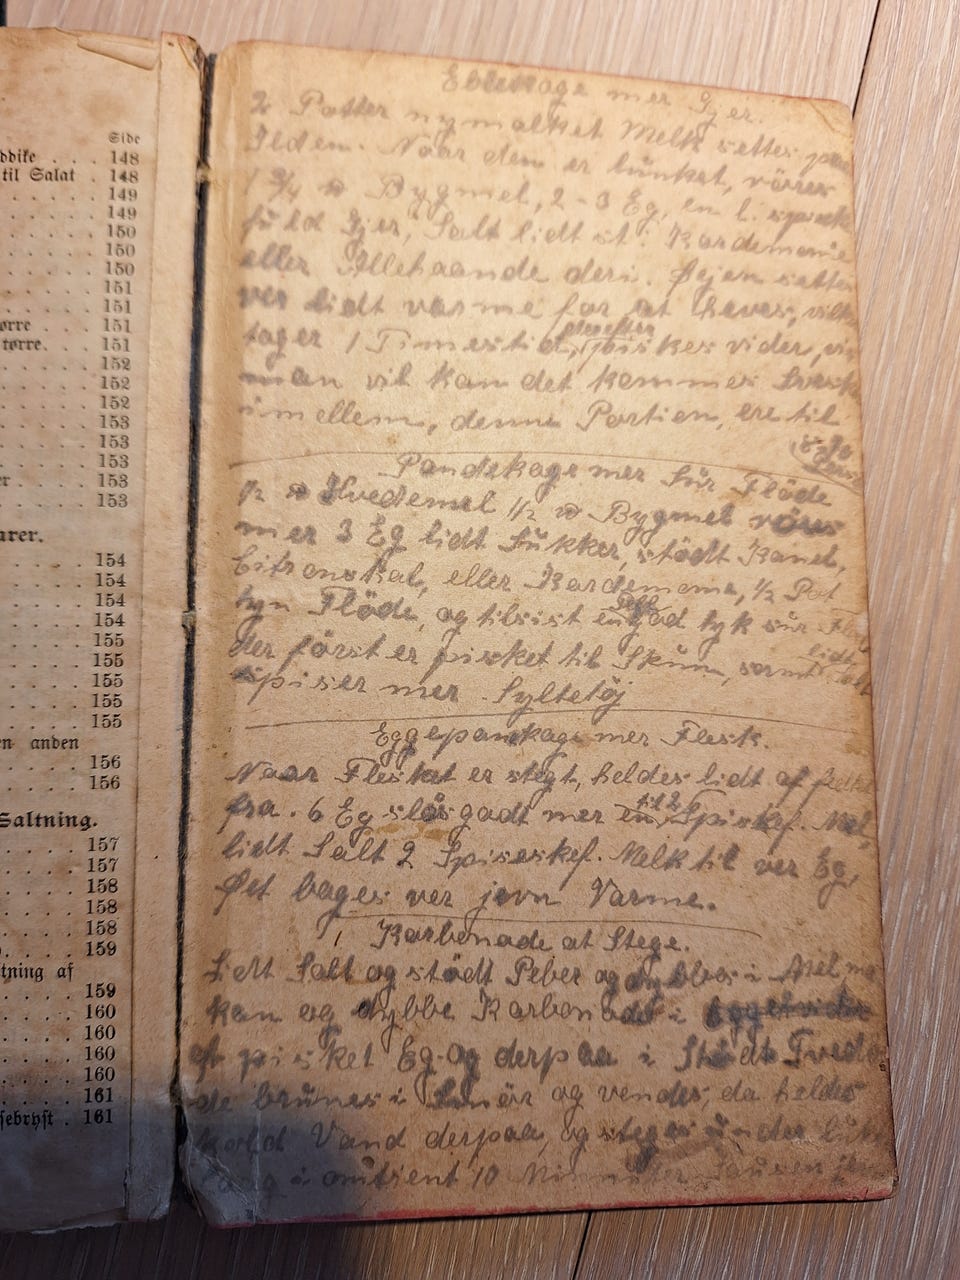 Side
ddike . . . 148
til Salat . 148
149
149
150
150
150
151
151
ørre . . . 151
tørre. . . . 151
152
152
152
153
153
153
er . . . . 153
153
arer.
154
154
154
154
155
155
155
155
155
en anden
156
156
Saltning.
157
157
158
158
158
159
tning af
159
160
160
160
160
161
sebryst . 161
Eblekage mer Gjer.
2 Potter nymalket Melk settes paa
Ilden. Naar den er lunket, röres
1 3/4 Bygmel, 2-3 Eg, en l. spisek
fuld Gjer, Salt lidt st. Kardemome
eller Allehaande deri. Dejen settes
ver lidt varme for at heves, vilk
derefter
tager 1 Timestid, piskes vider, vis
man vil kan det kommes Svesk
imellem, denne Portion, ere til
8-10
Pers
Pandekage mer Sur Flöde
1/2 Hvedemel 1/2 Bygmel röres
mer 3 Eg lidt Sukker, stödt Kanel,
Citronskal, eller Kardemome, 1/2 Pot
tyn Flöde, og tilsist en god tyk sur Flöde
der först er pisket til Skum, samt lidt Salt
spiser mer Syltetöj
Eggepankage mer Flesk.
Naar Flesket er stegt, heldes lidt af fedtet
til 2
fra. 6 Eg slåes godt mer en Spiskef. Mel,
lidt Salt 2 Spiseskef. Melk til ver Eg,
Det bages ver jevn Varme.
Karbonade at Stege.
Lidt Salt og stödt Peber og dybbes i Mel ma
kan og dybbe Karbonade i
et pisket Eg og derpaa i Stödt Tvebak
de brunes i Smör og vendes, da heldes
kold Vand derpaa, og steges under luk
Laag i omtrent 10 Minnuter Sausen